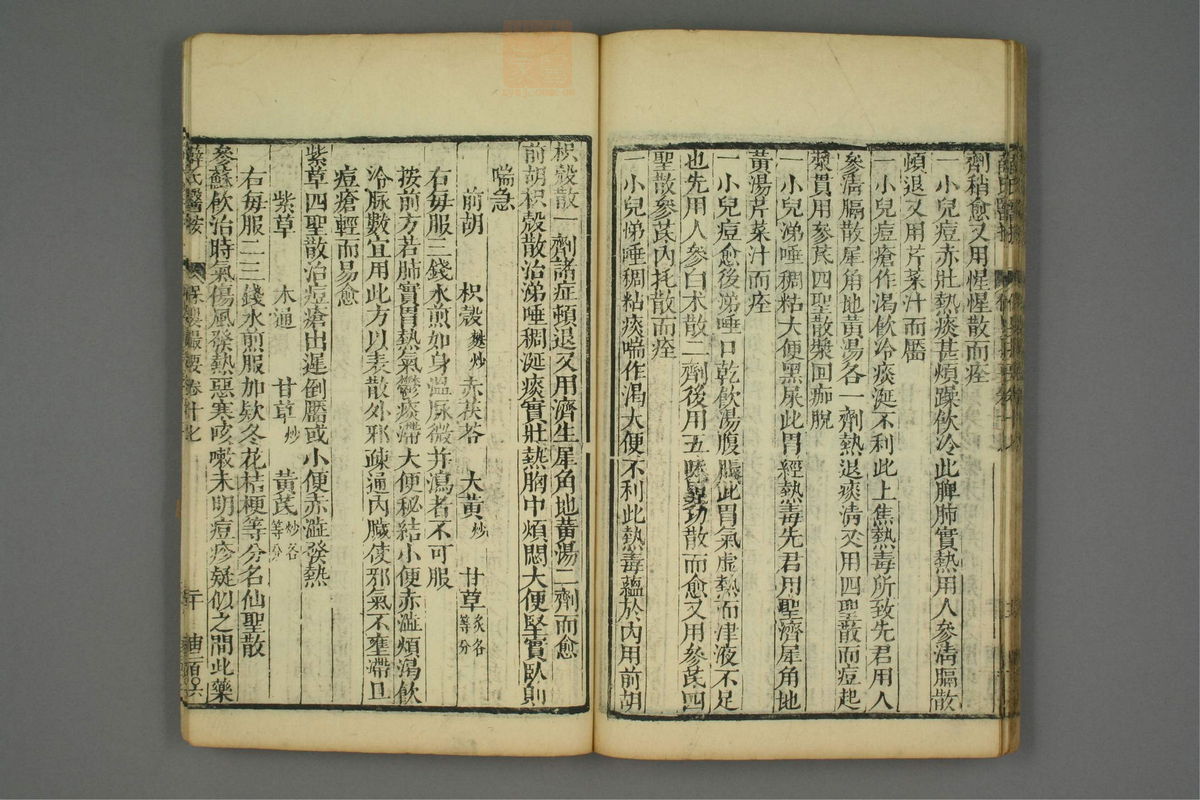 劑稍愈又用惺惺散而痊
一小兒痘赤壯熱痰甚煩躁飲冷此脾肺實熱用人參清膈散
頓退又用芹菜汁而靨
一小兒痘瘡作渴飲冷痰涎不利此上焦熱毒所致先君用人
參清膈散犀角地黃湯各一劑熱退痰清又用四聖散而痘起
漿貫用參芪四聖散漿回痂脫
一小兒涕唾稠粘大便黑尿此胃經熱毒先君用聖濟犀角地
黃湯芹菜汁而痊
一小兒痘愈後涕唾口乾飲湯腹脹此胃氣虛熱而津液不足
也先用人參白术散二劑後用五味異功散而愈又用參芪四
聖散參芪內托散而痊
一小兒涕唾稠粘痰喘作渴大便不利此熱毒蘊於內用前胡
枳殼散一劑諸症頓退又用濟生犀角地黃湯二劑而愈
前胡枳殼散治涕唾稠涎痰實壯熱胸中煩悶大便堅實臥則
喘急
前胡 枳殼麩炒 赤茯苓 大黃炒 甘草炙各等分
右每服三錢水煎如身溫脉微并瀉者不可服
按前方若肺實胃熱氣鬱痰滯大便秘結小便赤澁煩渴飲
冷脉數宜用此方以表散外邪疎通內臟使邪氣不壅滯且
痘瘡輕而易愈
紫草四聖散治痘瘡出遲倒靨或小便赤澁發熱
紫草 木通 甘草炒 黃芪炒各等分
右每服二三錢水煎服加欵冬花桔梗等分名仙聖散
參蘇飲治時氣傷風發熱惡寒咳嗽未明痘疹疑似之間此藥
薛氏醫按 保嬰撮要卷十七